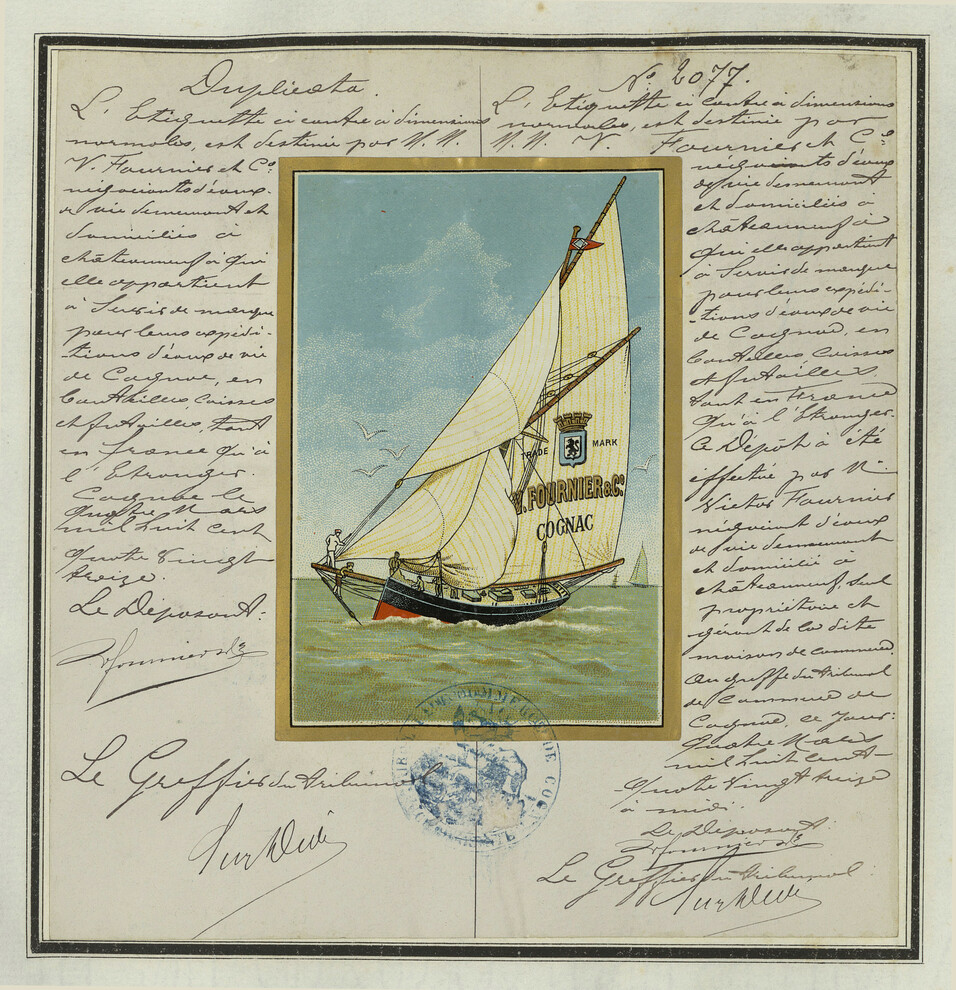 Duplicata.
L'Etiquette ci contre à dimensions
normales, est destinée par M.M.
V. Fournier et Cº
négociants d'eaux-
de vie demeurant et
domiciliés à
châteauneuf à qui
elle appartient
à Servir de marque
pour leurs expédi-
-tions d'eaux de vie
de Cognac, en
bouteilles, Caisses
et futailles, tant
en france qu'à
l'Etranger
Cognac le
Quatre Mars
mil huit cent
Quatre Vingt
treize.
Le Déposant:
V. Fournier & Cº
Le Greffier du tribunal
Nº 2077.
L'Etiquette ci contre à dimensions
normales, est destinée par
M.M. V. Fournier et Cº
négociants d'eaux
de vie demeurant
et domiciliés à
châteauneuf à
qui elle appartient
à Servir de marque
pour leurs expédi-
-tions d'eaux de vie
de Cognac, en
bouteilles, Caisses
et futailles,
tant en France
qu'à l'Etranger.
Ce Dépôt à été
effectué par M.
Victor Fournier
négociant d'eaux
de vie demeurant
et domicilié à
châteauneuf, seul
propriétaire et
gérant de la dite
maison de commerce.
au greffe du tribunal
de Commerce de
Cognac, ce jour:
Quatre Mars
mil huit cent
Quatre Vingt treize
à midi.
Le Déposant:
V. Fournier & Cº
Le Greffier du tribunal
TRADE MARK
V. FOURNIER & Cº
COGNAC